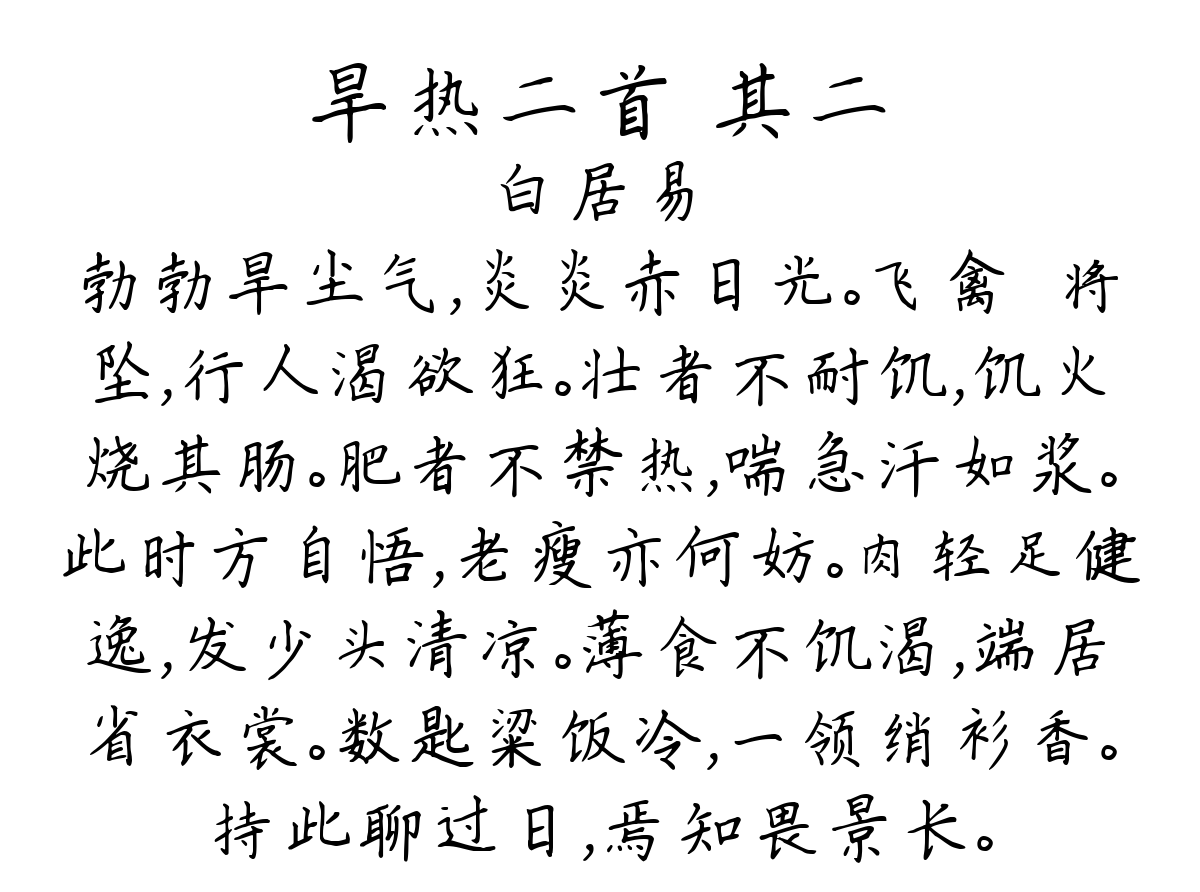 旱热二首 其二
白居易
勃勃旱尘气,炎炎赤日光。飞禽 将
坠,行人渴欲狂。壮者不耐饥,饥火
烧其肠。肥者不禁热,喘急汗如浆。
此时方自悟,老瘦亦何妨。肉轻足健
逸,发少头清凉。薄食不饥渴,端居
省衣裳。数匙粱饭冷,一领绡衫香。
持此聊过日,焉知畏景长。